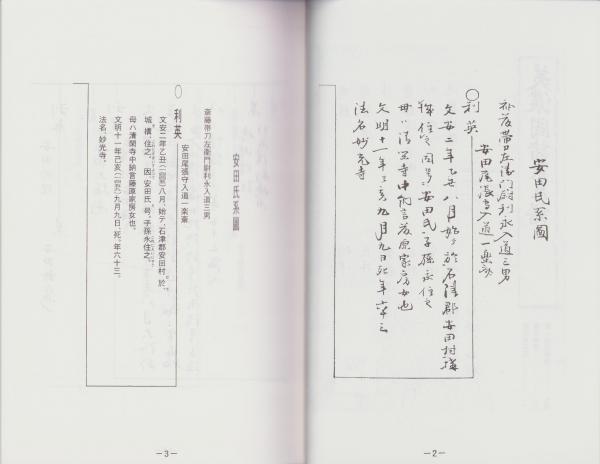 安田氏系図
斎藤帯刀左衛門尉利永入道三男
安田尾張守入道一楽斎
○利英
文安二年乙丑八月始テ於石津郡安田村構
城住之因号安田氏子孫永住之
母ハ清閑寺中納言藤原家房女也
文明十一年己亥九月九日死年六十三
法名妙光寺
－2－
安田氏系圖
斎藤帯刀左衛門尉利永入道三男
安田尾張守入道一楽斎
○利英
文安二年乙丑(一四四五)八月、始テ、石津郡安田村。於、
城、構、住之。因、安田氏、号。子孫永住之。
母ハ清閑寺中納言藤原家房女也。
文明十一年己亥(一四七九)九月九日、死。年六十三。
法名、妙光寺。
－3－